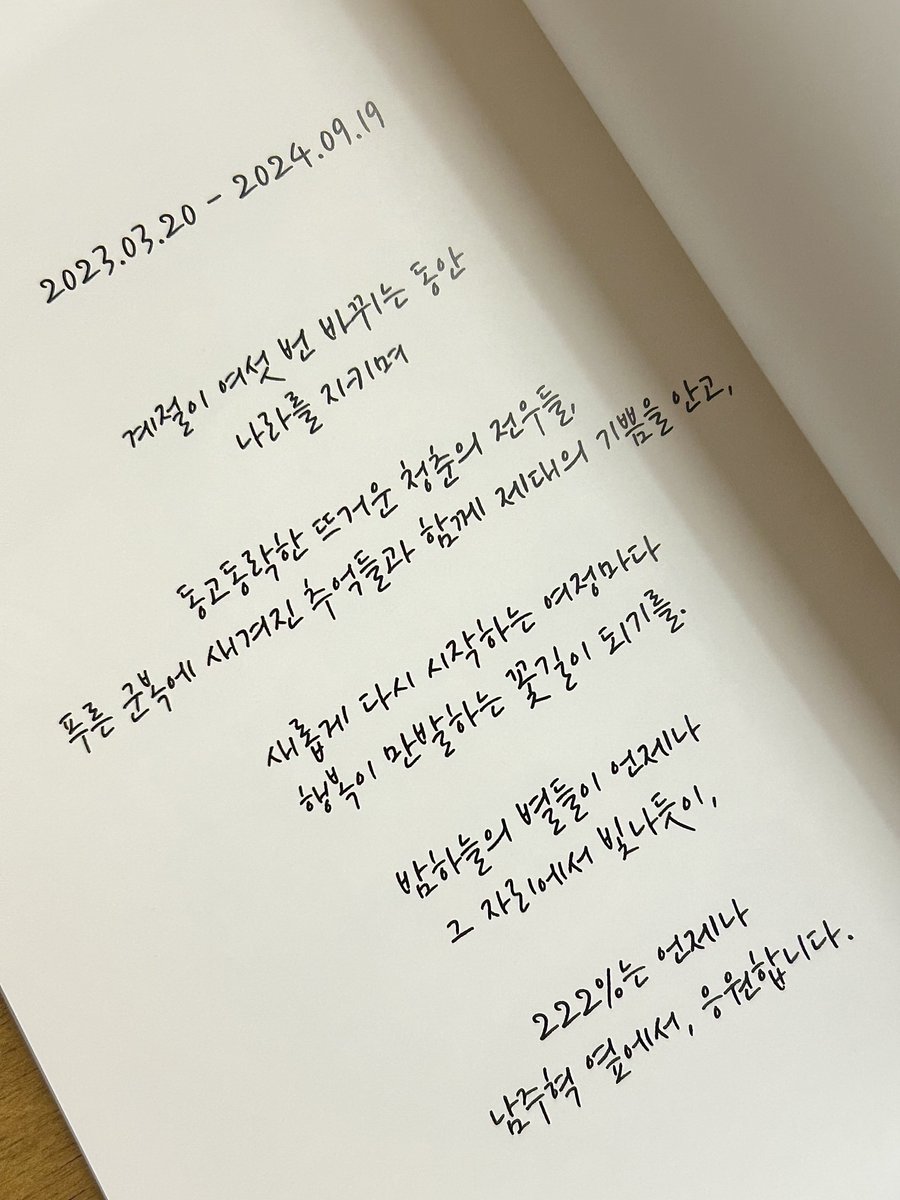 2023.03.20 - 2024.09.19
계절이 여섯 번 바뀌는 동안
나라를 지키며
동고동락한 뜨거운 청춘의 전우들,
푸른 군복에 새겨진 추억들과 함께 제대의 기쁨을 안고,
새롭게 다시 시작하는 여정마다
행복이 만발하는 꽃길이 되기를.
밤하늘의 별들이 언제나
그 자리에서 빛나듯이,
222%는 언제나
남주혁 옆에서, 응원합니다.